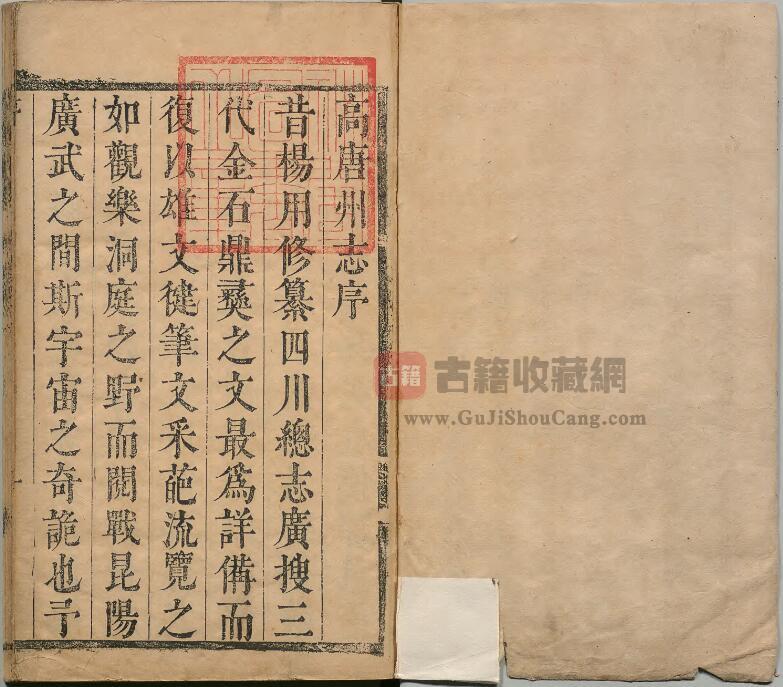 高唐州志序
昔楊用修纂四川總志廣搜三
代金石鼎彛之文最爲詳備而
復以雄文徤筆文釆葩流覽之
如觀樂洞庭之野而閱戰昆陽
廣武之間斯宇宙之竒詭也予
古籍 古籍收藏網
www.GuJiShouCang.com